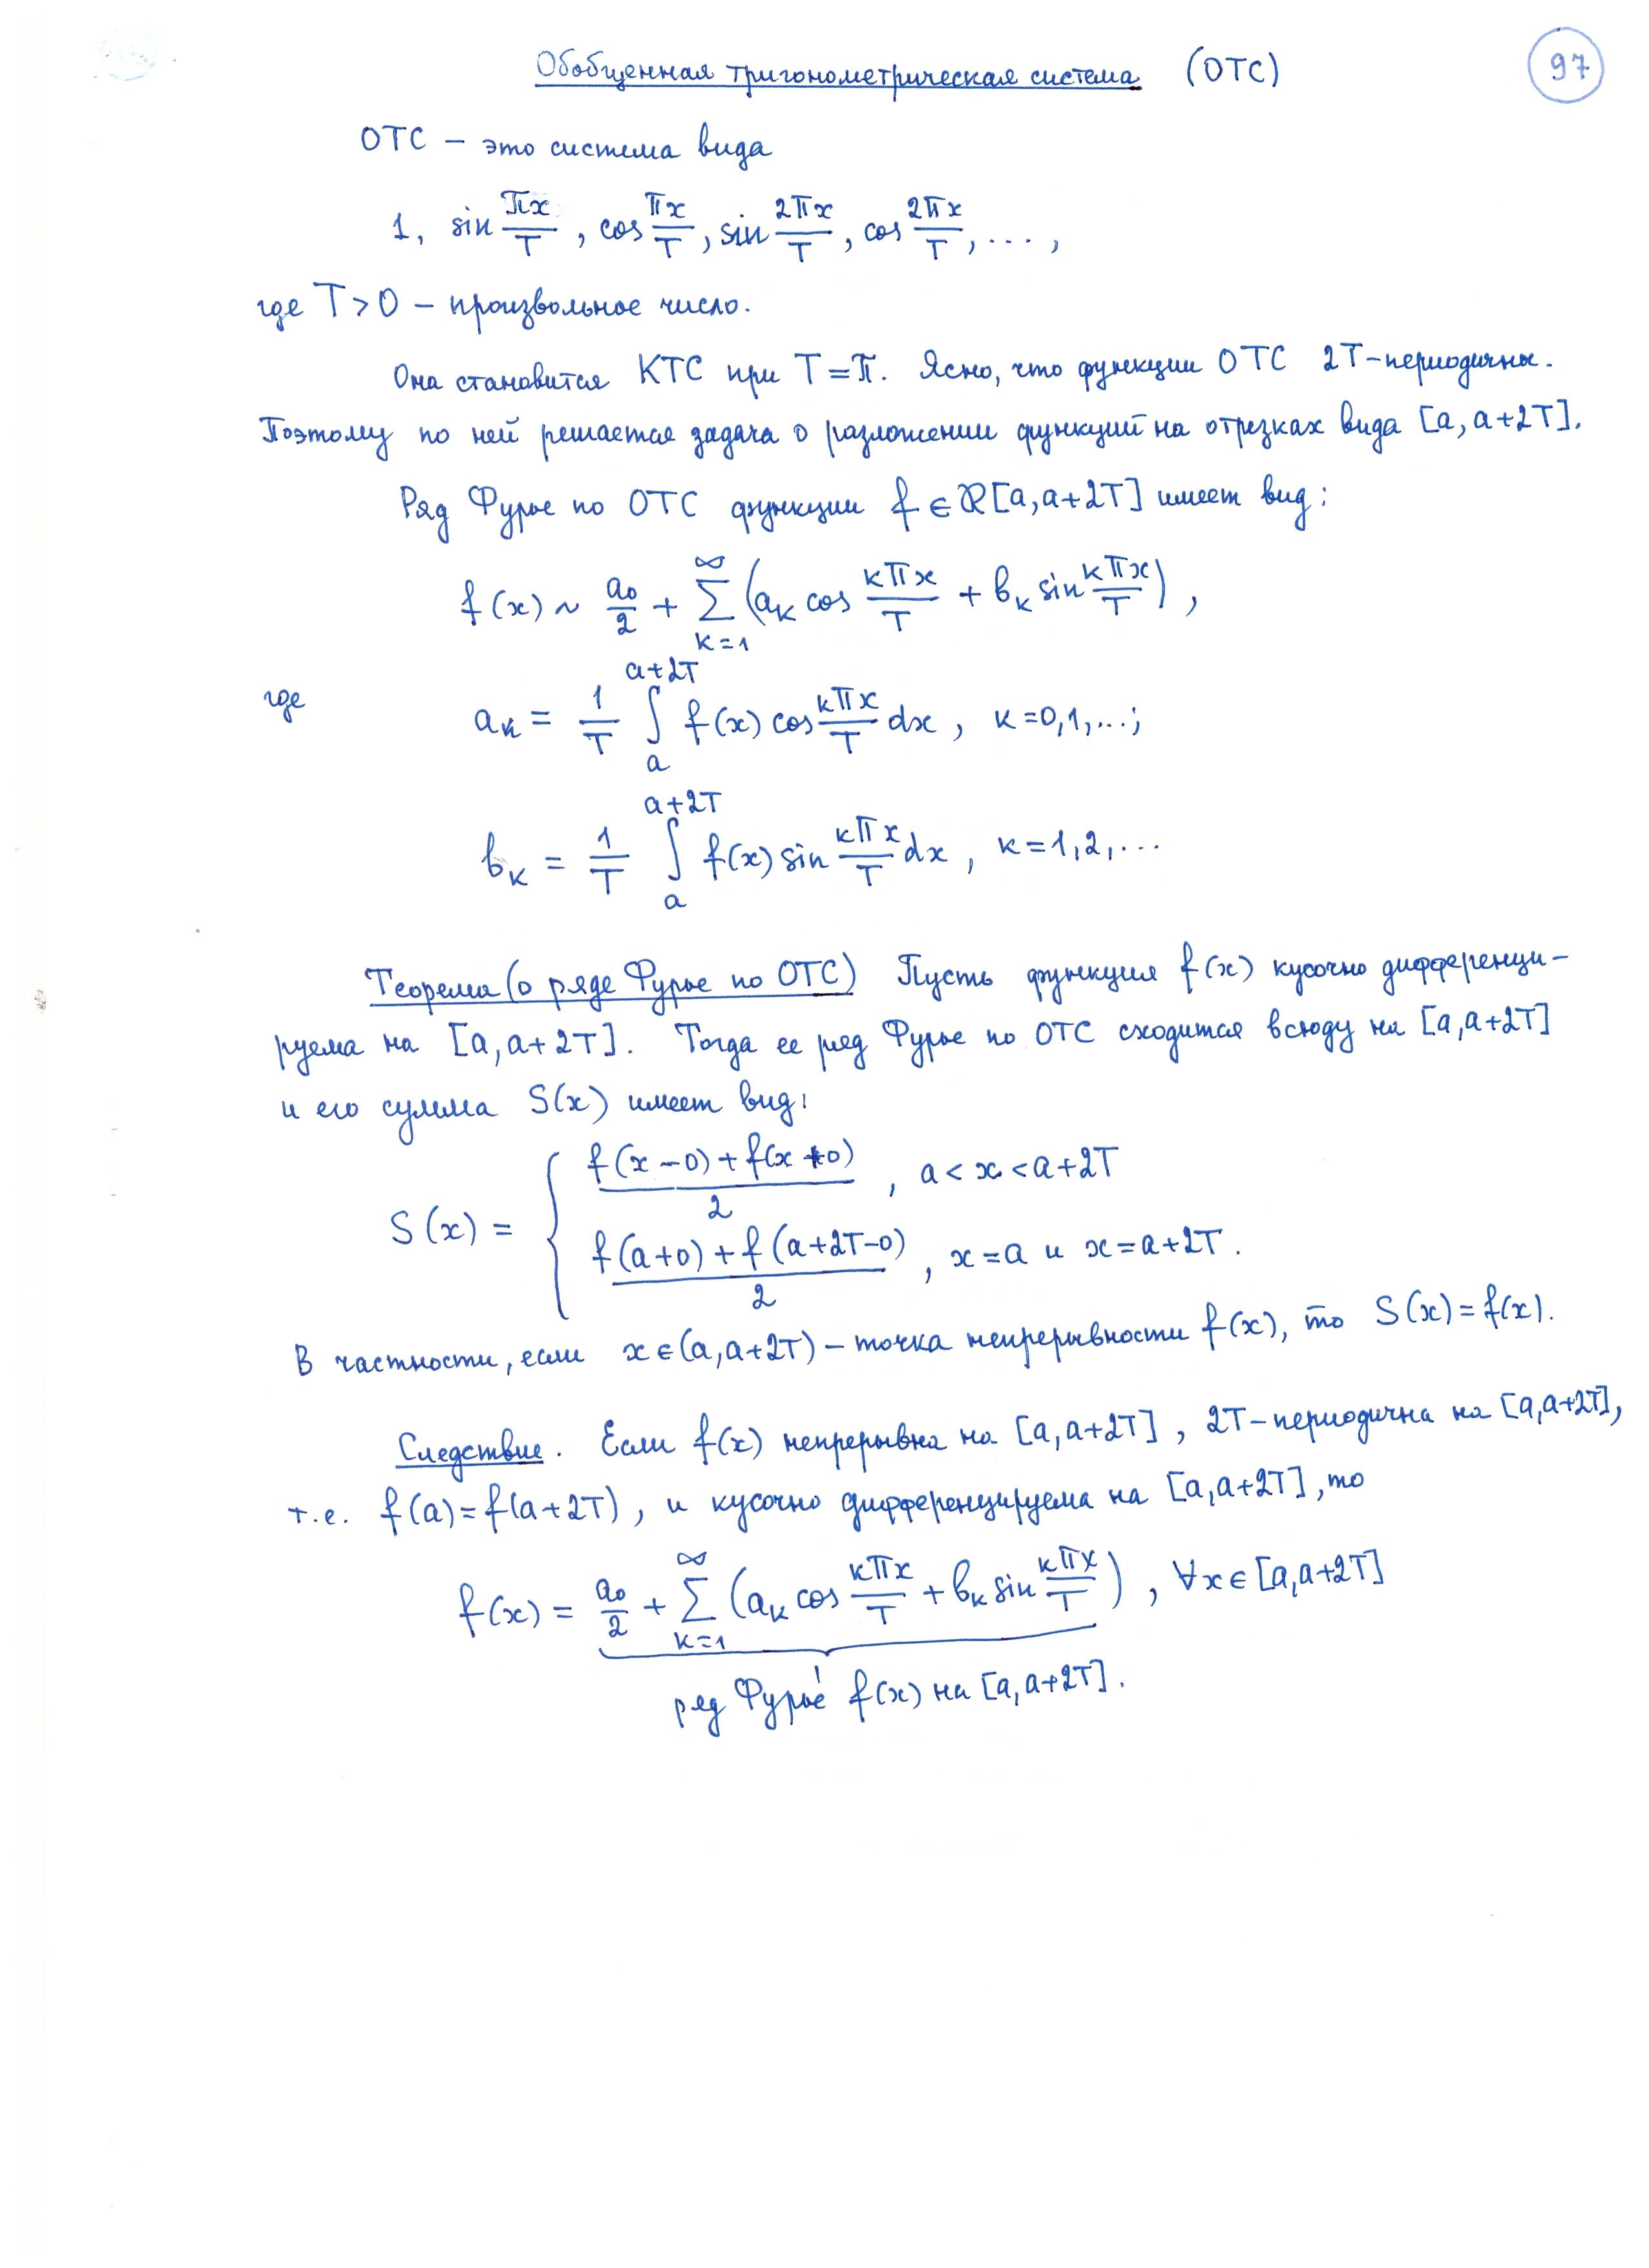 Обобщенная тригонометрическая система (ОТС)
97
ОТС – это система вида
1, sin πx/T, cos πx/T, sin 2πx/T, cos 2πx/T, ...,
где T > 0 – произвольное число.
Она становится КТС при T = π. Ясно, что функции ОТС 2T-периодичны.
Поэтому по ней решается задача о разложении функций на отрезках вида [a, a+2T].
Ряд Фурье по ОТС функции f ∈ ℛ[a, a+2T] имеет вид:
f(x) ~ a₀/2 + ∑_{k=1}^{∞} (aₖ cos kπx/T + bₖ sin kπx/T),
где aₖ = 1/T ∫_{a}^{a+2T} f(x) cos kπx/T dx, k = 0,1,...;
bₖ = 1/T ∫_{a}^{a+2T} f(x) sin kπx/T dx, k = 1,2,...
Теорема (о ряде Фурье по ОТС) Пусть функция f(x) кусочно дифференци-
руема на [a, a+2T]. Тогда ее ряд Фурье по ОТС сходится всюду на [a, a+2T]
и его сумма S(x) имеет вид:
S(x) = { (f(x-0) + f(x+0))/2, a < x < a+2T
(f(a+0) + f(a+2T-0))/2, x = a и x = a+2T.
В частности, если x ∈ (a, a+2T) – точка непрерывности f(x), то S(x) = f(x).
Следствие. Если f(x) непрерывна на [a, a+2T], 2T-периодична на [a, a+2T],
т.е. f(a) = f(a+2T), и кусочно дифференцируема на [a, a+2T], то
f(x) = a₀/2 + ∑_{k=1}^{∞} (aₖ cos kπx/T + bₖ sin kπx/T), ∀x ∈ [a, a+2T]
ряд Фурье́ f(x) на [a, a+2T].